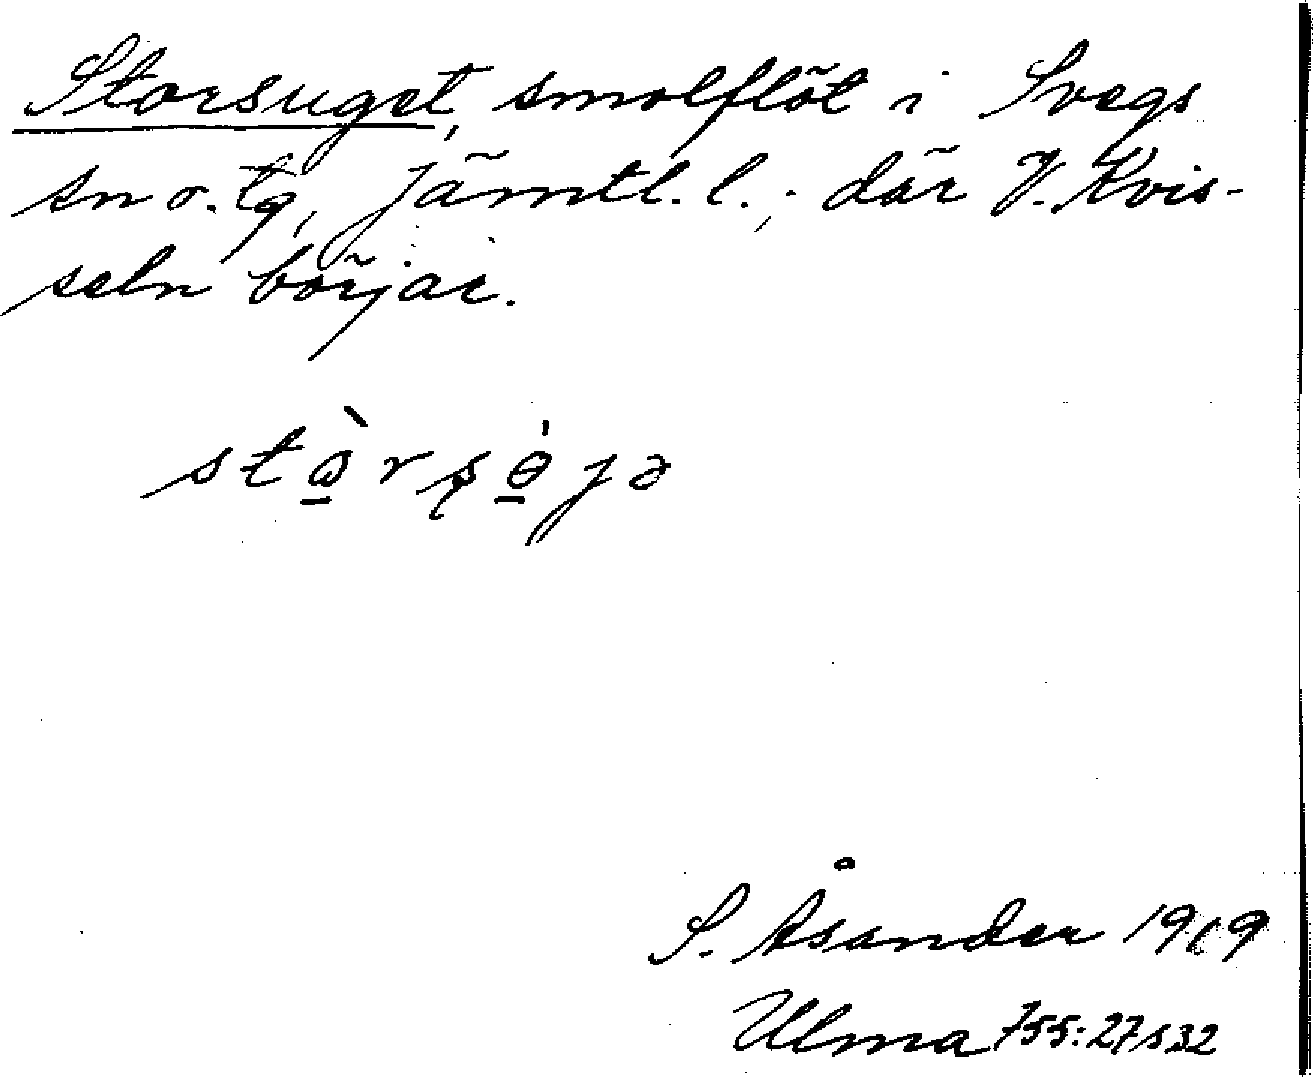 Storsuget, smolflöt i Svegs
sn o. tg, Jämtl. l.; där V. Kvis-
seln börjar.
S. Åsander 1909
Ulma 755:27 s 32